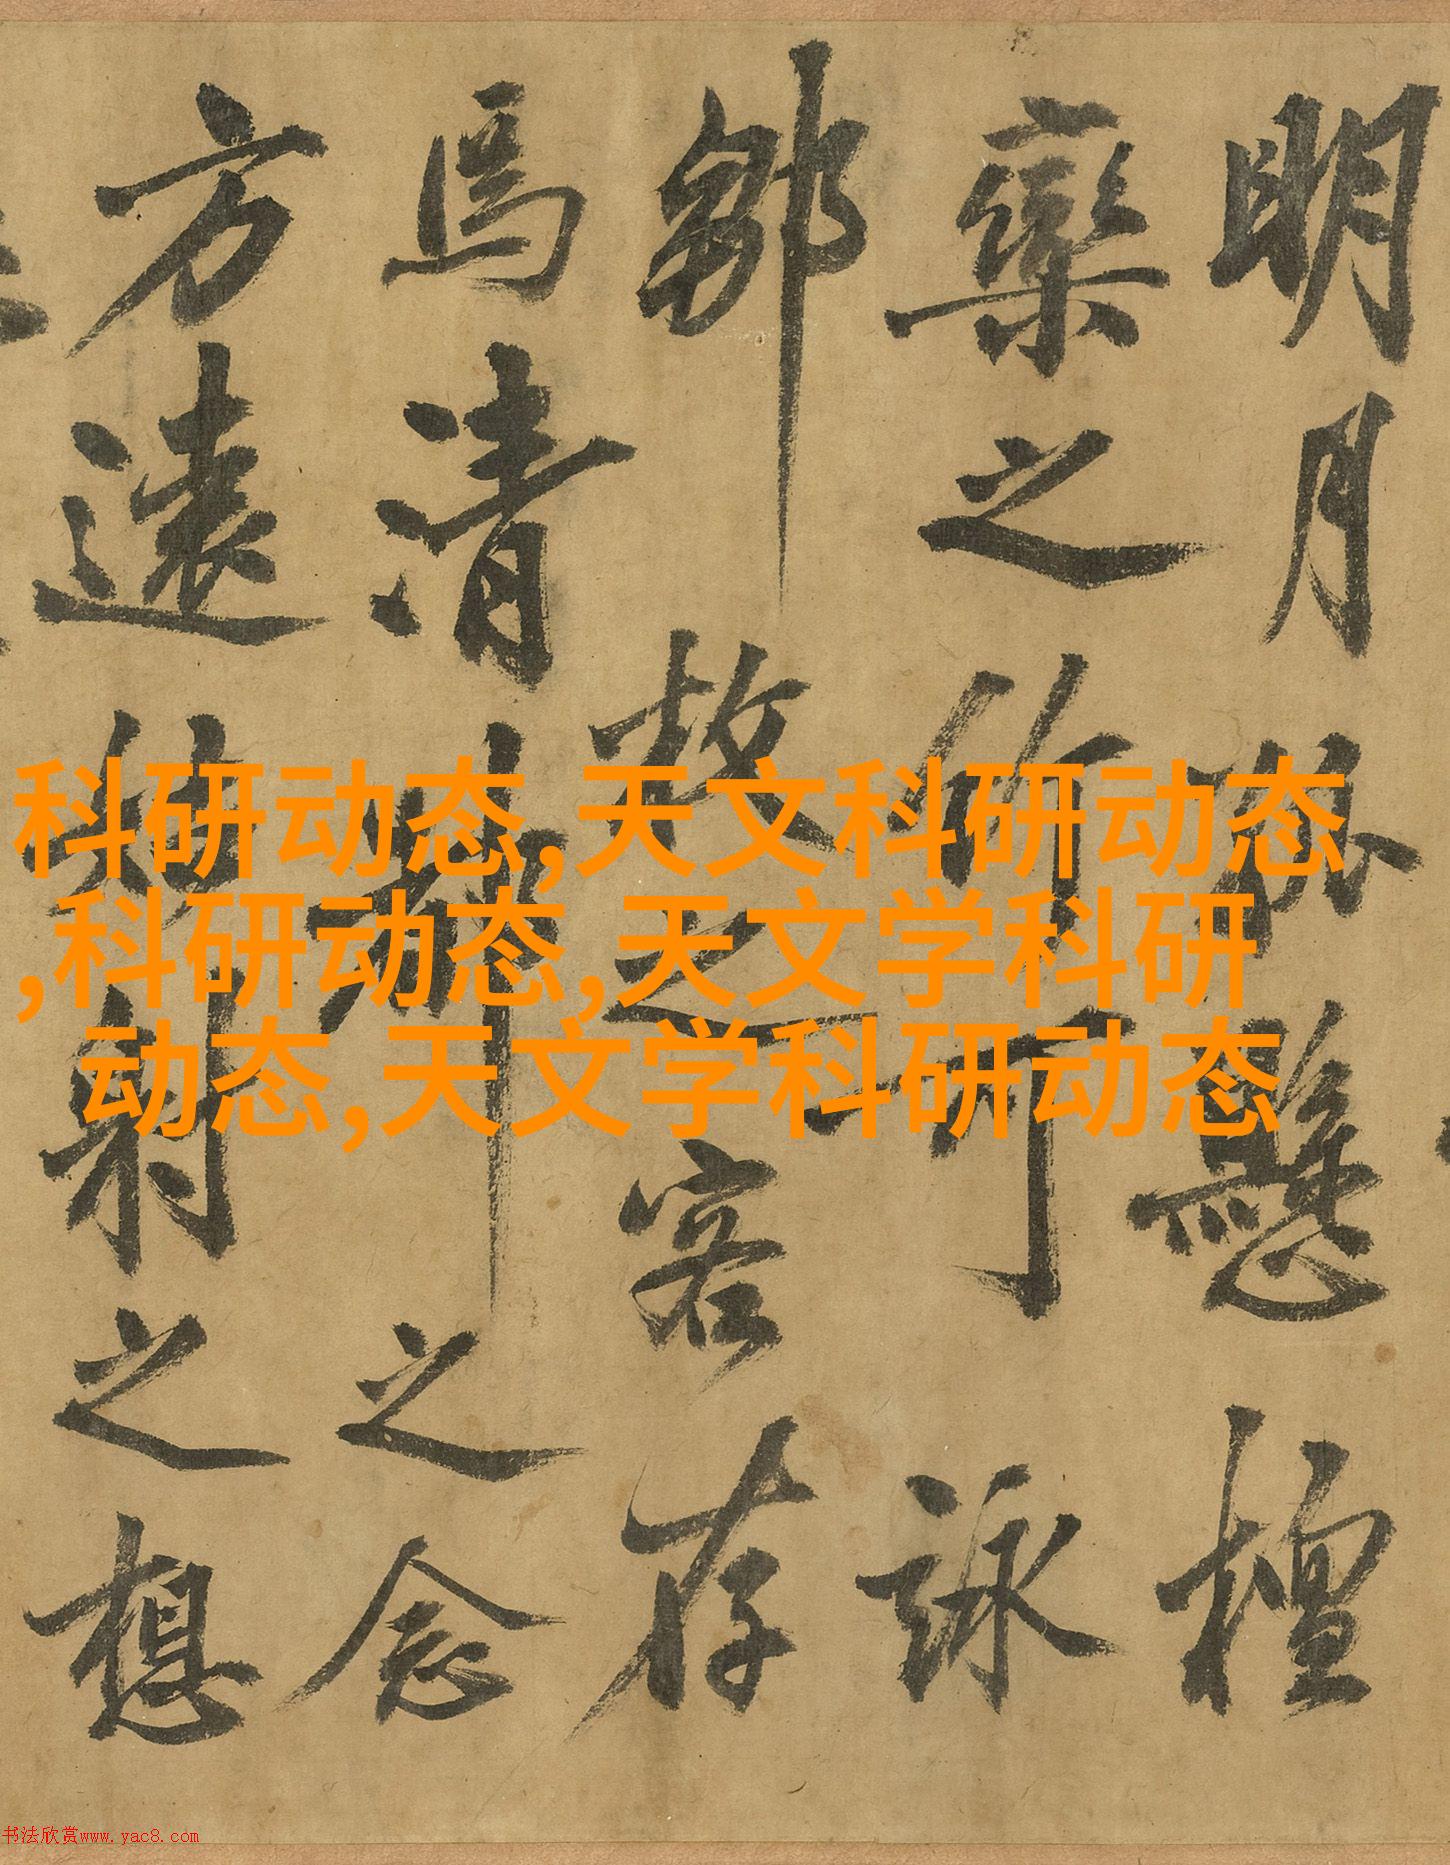 明月孤懸檀
欒之竹可詠
鄒枚之客存
焉清都之念
方遠姑射之想
科研动态,天文科研动态
,科研动态,天文学科研
动态,天文学科研动态
书法欣赏www.yac8.com